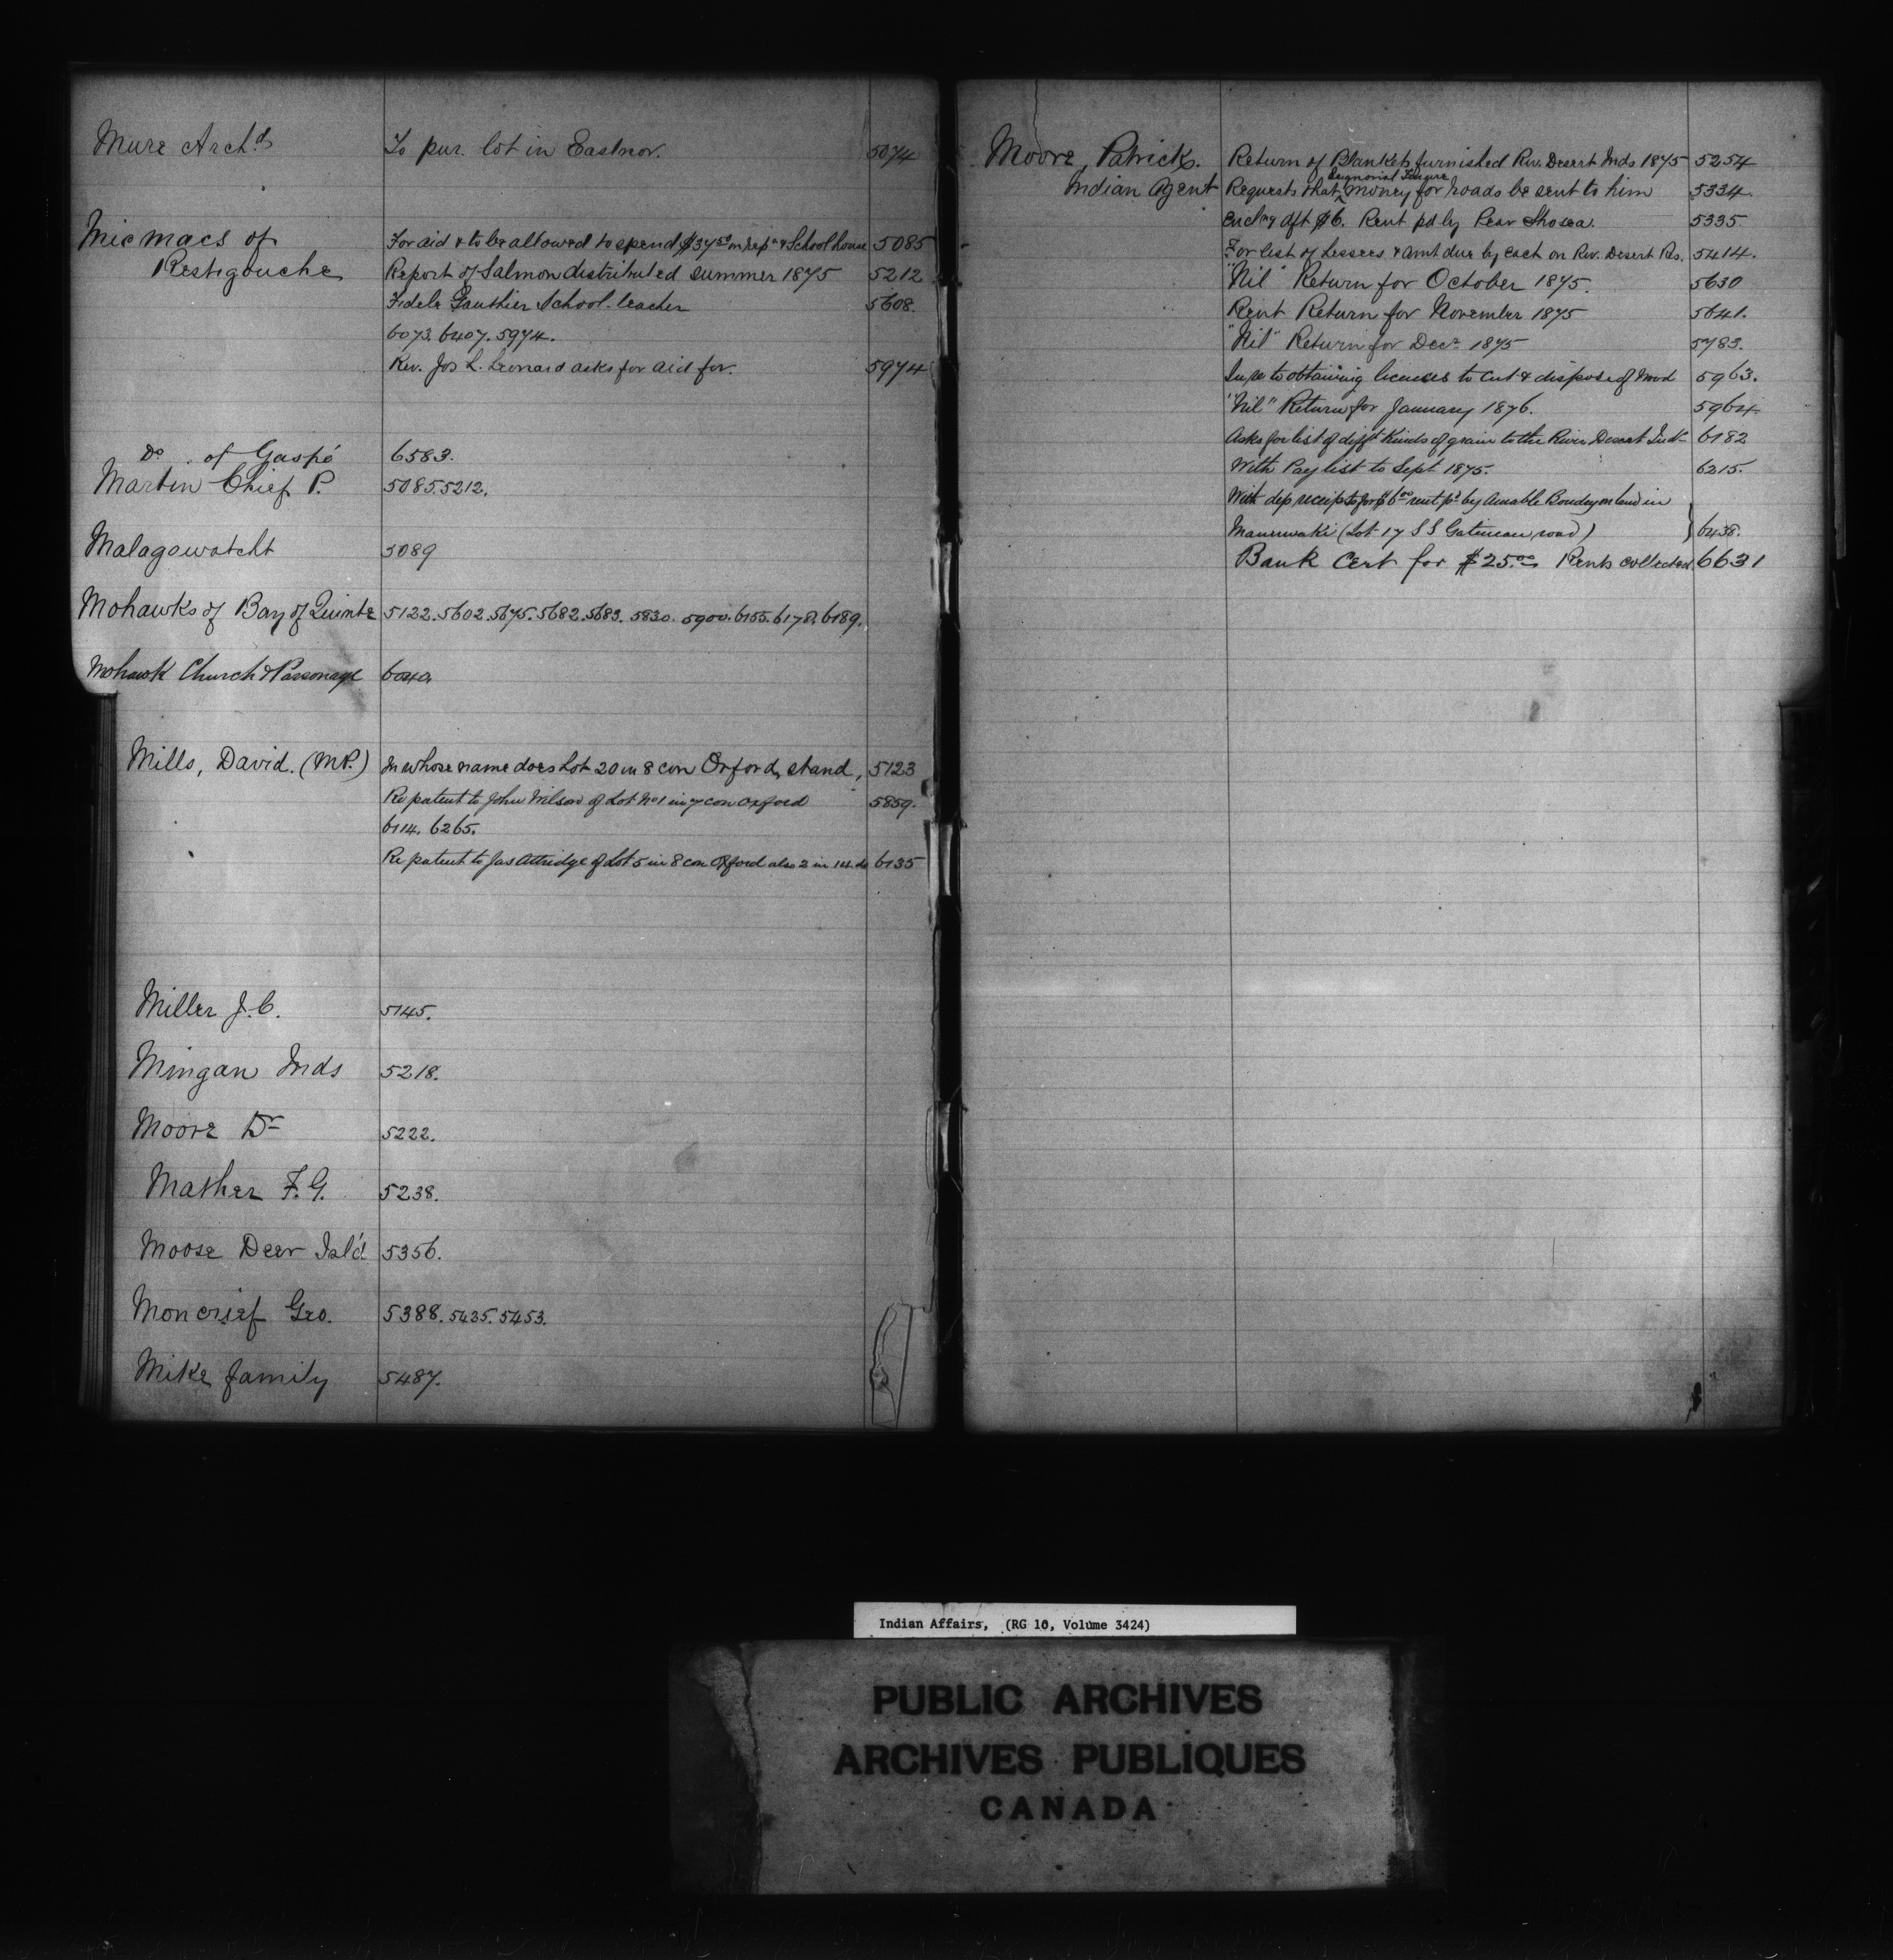 Mure Archd To pur. lot in Eastnor. 5074
Micmacs of For aid & to be allowed to spend $37.50 on rep. of School house 5085
Restigouche Report of Salmon distributed summer 1875 5212
Fidele Gauthier School-teacher 5608.
6073. 6407. 5974.
Rev. Jos L. Leonard asks for aid for. 5974
Do. of Gaspé 6583.
Martin Chief P. 5085. 5212.
Malagowatcht 5089
Mohawks of Bay of Quinte 5122. 5602. 5675. 5682. 5683. 5830. 5900. 6155. 6178. 6189.
Mohawk Church & Parsonage
Mills, David. (M.P.) In whose name does Lot 20 in 8 con Orford, stand, 5123
Re patent to John Wilson of Lot No 1 in 7 con Orford 5859.
6114. 6265.
Re patent to Jas Attridge of Lot 5 in 8 con Orford also 2 in 6135
Miller J. C. 5145.
Mingan Inds 5218.
Moore Dr 5222.
Mather F. G. 5238.
Moose Deer Isl'd 5356.
Moncrief Geo. 5388. 5425. 5453.
Mike family 5487.
Moore, Patrick. Return of Blankets furnished Riv. Desert Inds 1875 5254
Seignorial Tenure
Indian Agent Requests that money for roads be sent to him 5334.
Encl'ng dft $6. Rent pd by Pear 5335.
For list of Lessees & amt due by each on Riv. Desert Rs. 5414.
"Nil" Return for October 1875. 5630
Rent Return for November 1875 5641.
"Nil" Return for Decr 1875 5783.
to obtaining licenses to cut & dispose of wood 5963.
"Nil" Return for January 1876. 5964.
Asks for list of difft kinds of grain to the River Desert Inds 6182
With Pay list to Sept 1875. 6215.
With dep receipts for $6.00 rent pd by Amable on land in
Maniwaki (Lot 17 S S Gatineau road) } 6438.
Bank Cert for $25.00 Rents collected 6631
Indian Affairs, (RG 10, Volume 3424)
PUBLIC ARCHIVES
ARCHIVES PUBLIQUES
CANADA